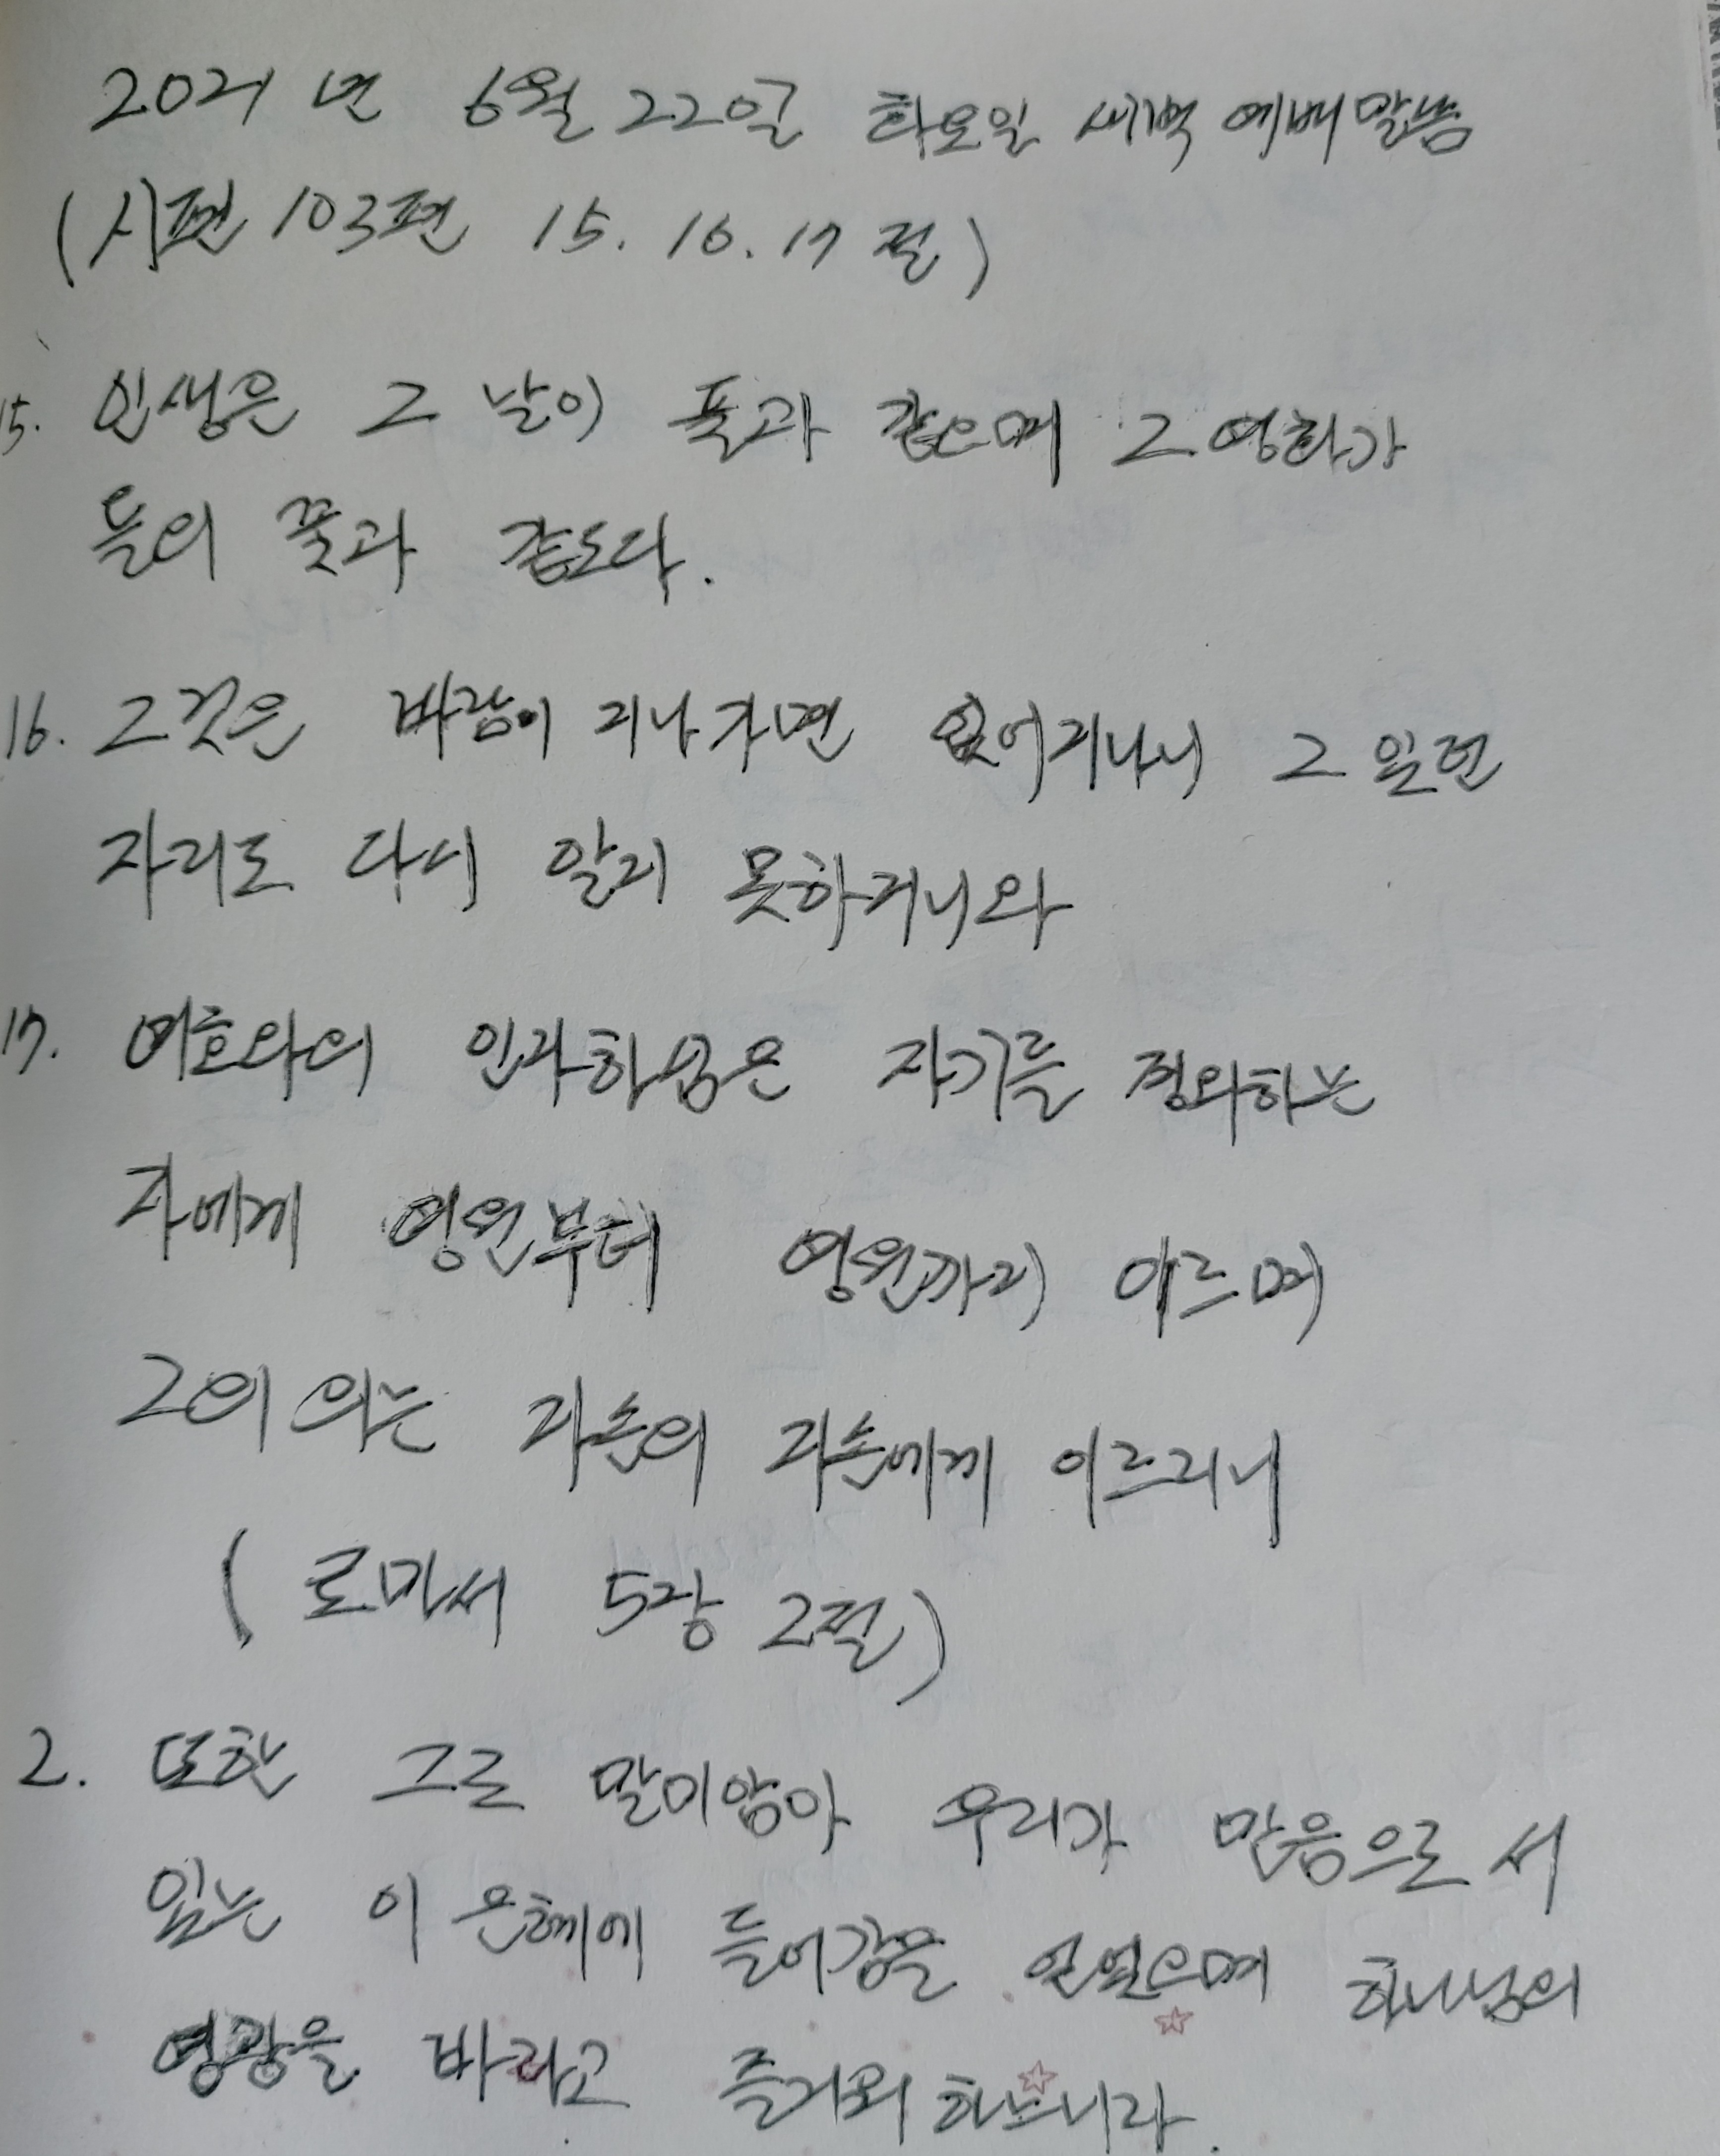 2021년 6월 22일 화요일 새벽 예배 말씀
(시편 103편 15. 16. 17절)
15. 인생은 그 날이 풀과 같으며 그 영화가
들의 꽃과 같도다.
16. 그것은 바람이 지나가면 없어지나니 그 있던
자리도 다시 알지 못하거니와
17. 여호와의 인자하심은 자기를 경외하는
자에게 영원부터 영원까지 이르며
그의 의는 자손의 자손에게 이르리니
(로마서 5장 2절)
2. 또한 그로 말미암아 우리가 믿음으로 서
있는 이 은혜에 들어감을 얻었으며 하나님의
영광을 바라고 즐거워 하느니라.